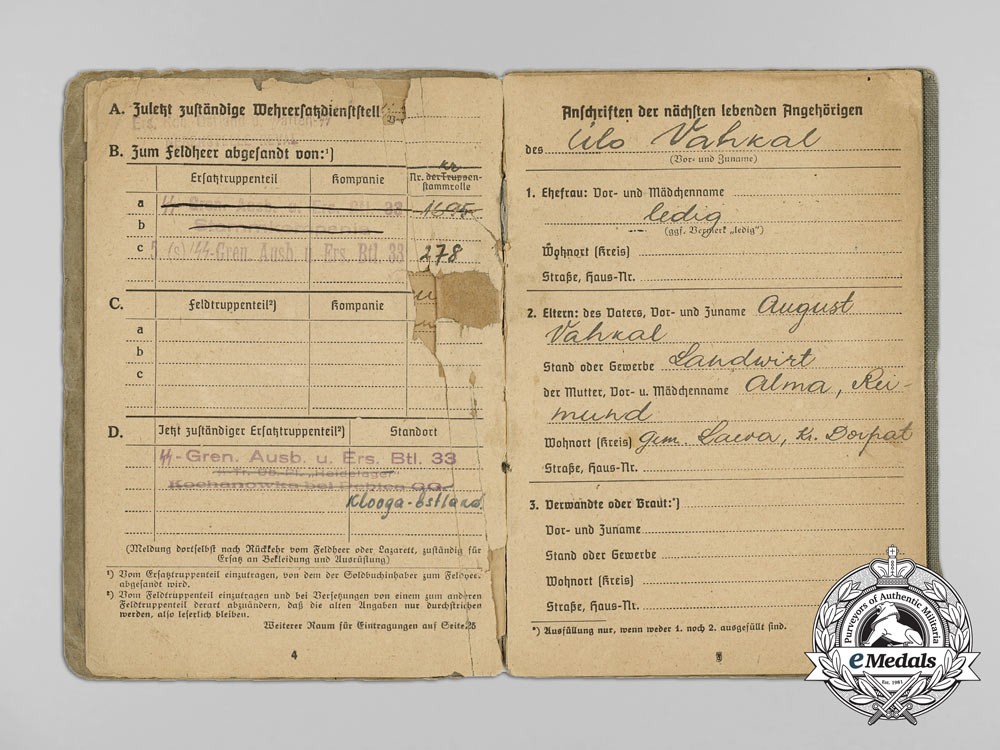 A. Zuletzt zuständige Wehrersatzdienststell
B. Zum Feldheer abgesandt von:¹)
Ersatztruppenteil Kompanie Nr. der Truppen-
Kr
stammrolle
a ᛋᛋ-Gren. Ausb. u. Ers. Btl. 33 1695
b Stamm-Kompanie
c 5 (s) ᛋᛋ-Gren. Ausb. u. Ers. Btl. 33 278
C. Feldtruppenteil²) Kompanie
a
b
c
D. Jetzt zuständiger Ersatztruppenteil²) Standort
ᛋᛋ-Gren. Ausb. u. Ers. Btl. 33
ᛋᛋ-Tr. Üb. Pl. „Heidelager"
Kochanowka bei Debica GG.
Klooga-Ostland.
(Meldung dortselbst nach Rückkehr vom Feldheer oder Lazarett, zuständig für
Ersatz an Bekleidung und Ausrüstung)
¹) Vom Ersatztruppenteil einzutragen, von dem der Soldbuchinhaber zum Feldheer
abgesandt wird.
²) Vom Feldtruppenteil einzutragen und bei Versetzungen von einem zum anderen
Feldtruppenteil derart abzuändern, daß die alten Angaben nur durchstrichen
werden, also leserlich bleiben.
Weiterer Raum für Eintragungen auf Seite 25
4
Anschriften der nächsten lebenden Angehörigen
des Ülo Vahkal
(Vor- und Zuname)
1. Ehefrau: Vor- und Mädchenname
ledig
(ggf. Vermerk „ledig")
Wohnort (Kreis)
Straße, Haus-Nr.
2. Eltern: des Vaters, Vor- und Zuname August
Vahkal
Stand oder Gewerbe Landwirt
der Mutter, Vor- u. Mädchenname Alma, Rei-
mund
Wohnort (Kreis) Gem. Laeva, Kr. Dorpat
Straße, Haus-Nr.
3. Verwandte oder Braut:*)
Vor- und Zuname
Stand oder Gewerbe
Wohnort (Kreis)
Straße, Haus-Nr.
*) Ausfüllung nur, wenn weder 1. noch 2. ausgefüllt sind.
5
Purveyors of Authentic Militaria
eMedals
Est. 1981